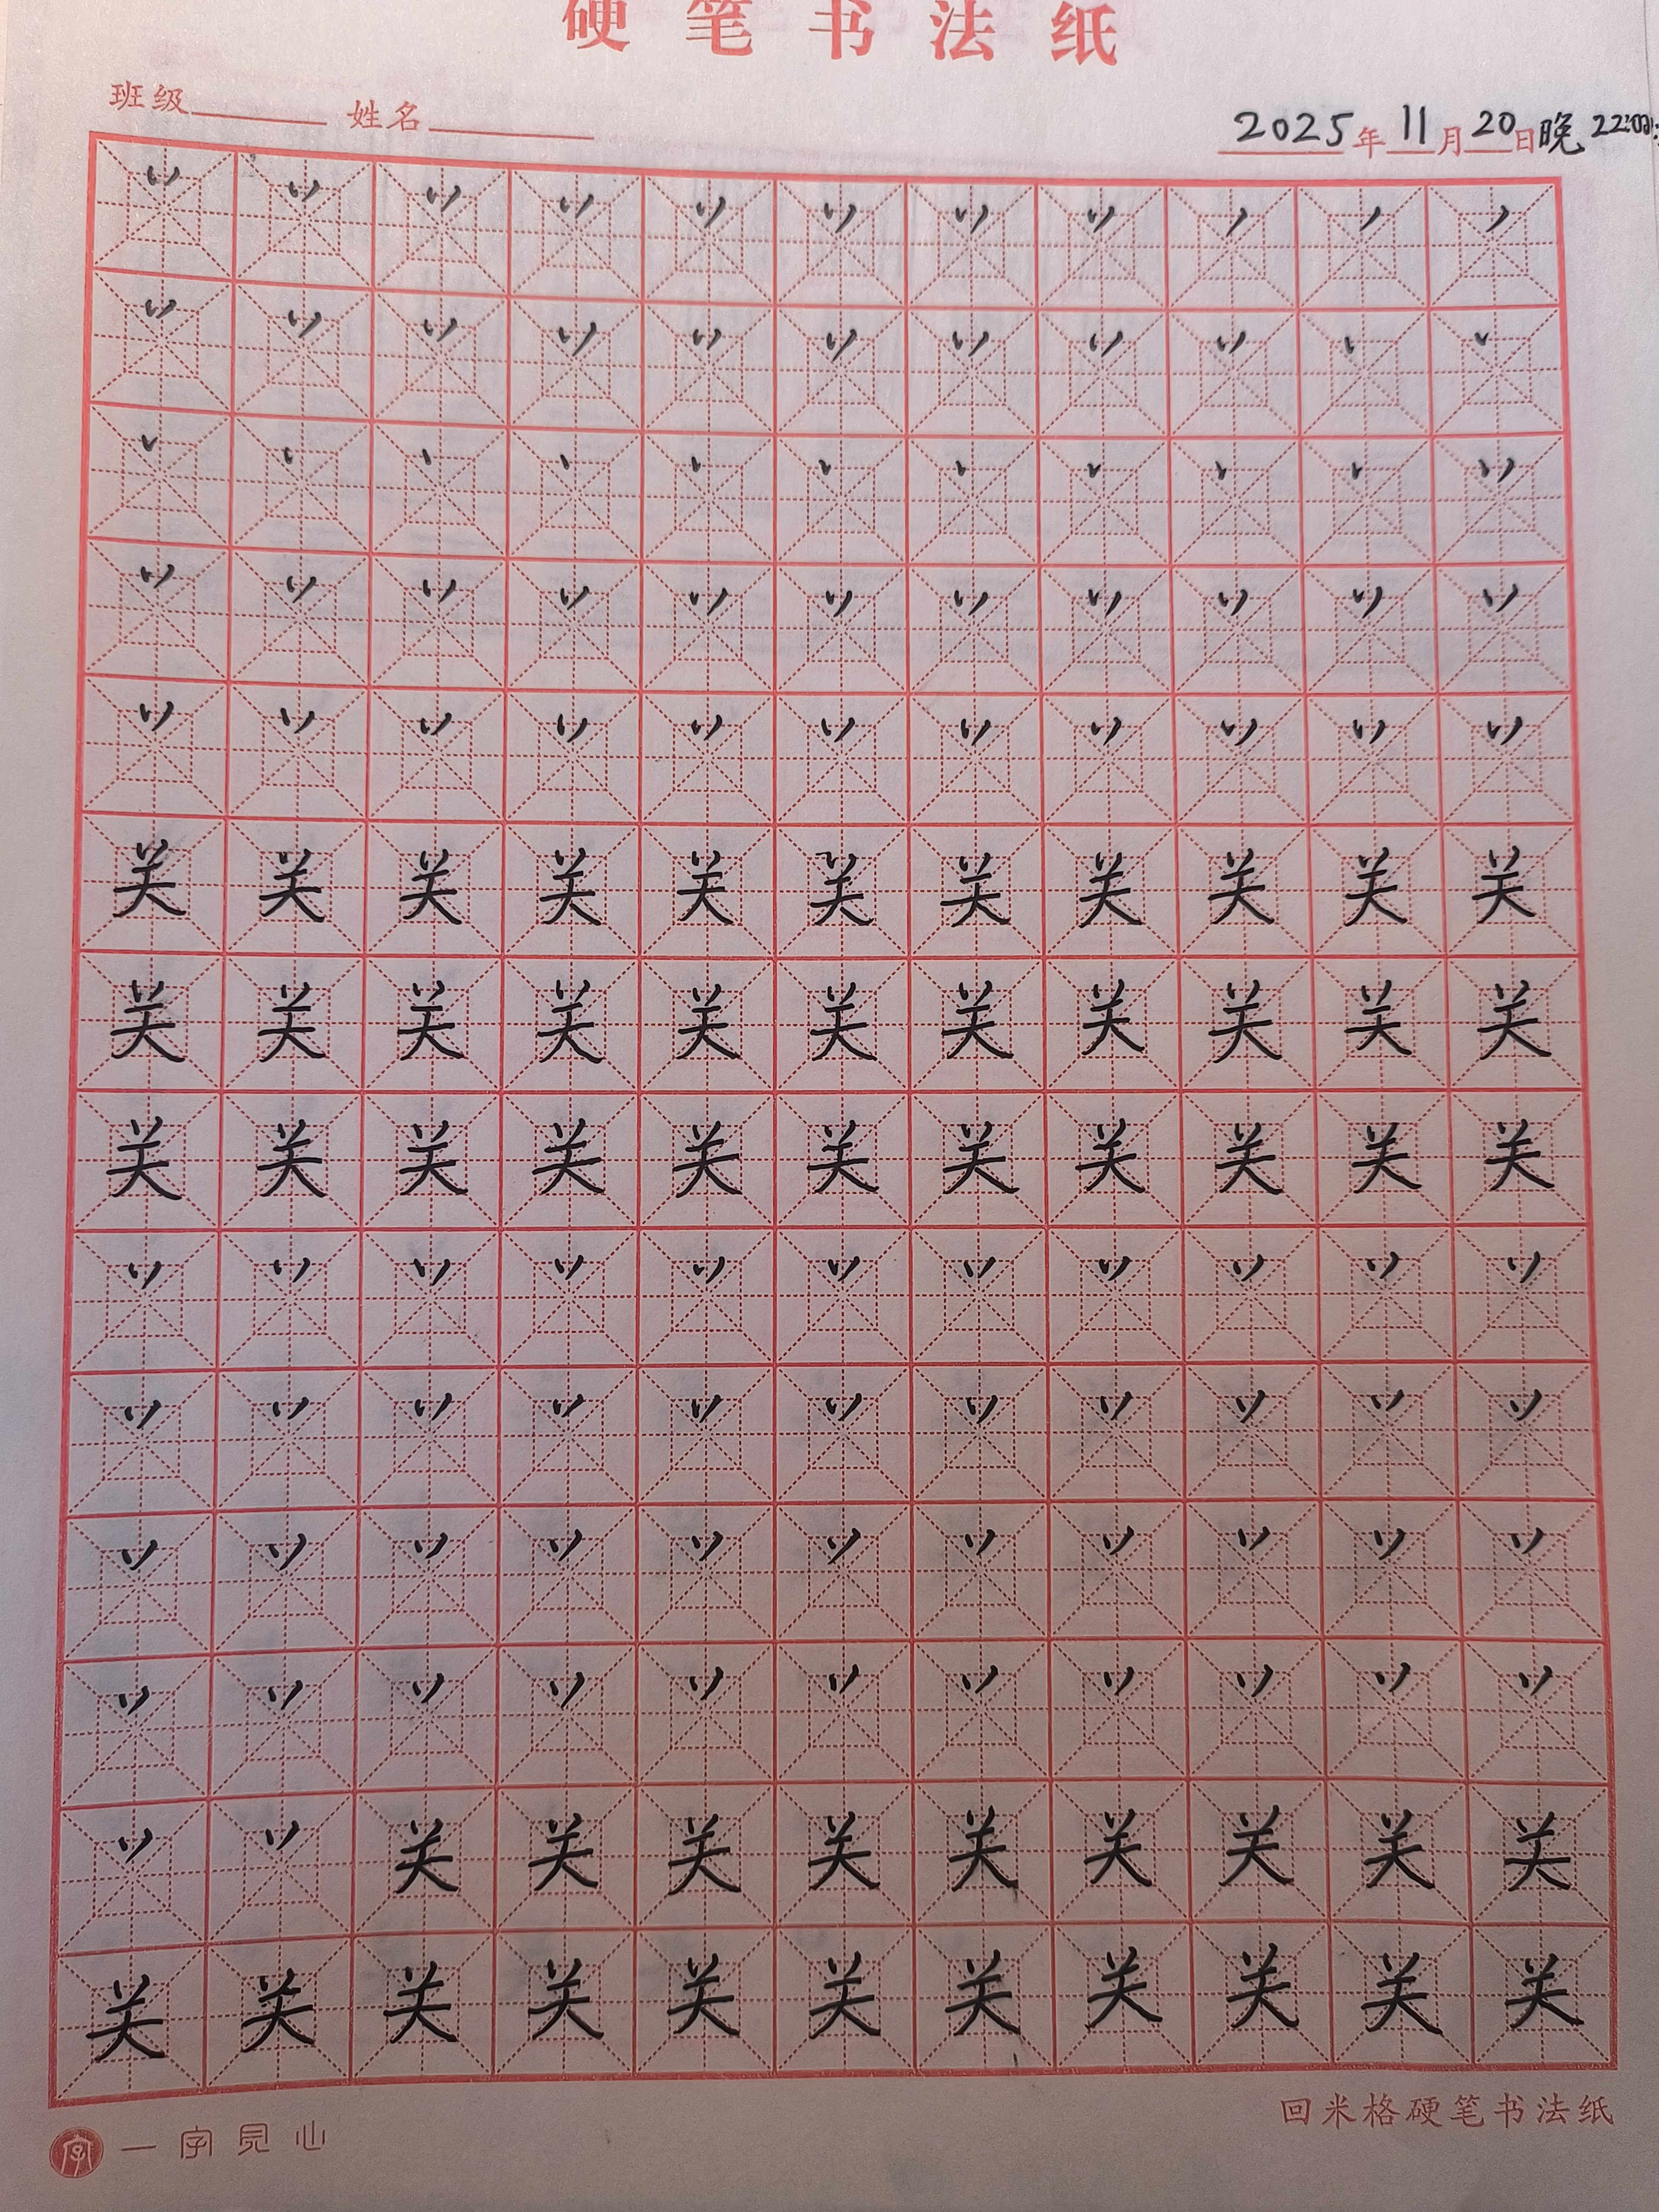 硬笔书法纸
班级 姓名 2025年11月20日晚
丷 丷 丷 丷 丷 丷 丷 丷 丿 丿 丿
丷 丷 丷 丷 丷 丷 丷 丷 丷 丶 丶
丶 丶 丶 丶 丶 丶 丶 丶 丶 丶 丷
丷 丷 丷 丷 丷 丷 丷 丷 丷 丷 丷
丷 丷 丷 丷 丷 丷 丷 丷 丷 丷 丷
关 关 关 关 关 关 关 关 关 关 关
关 关 关 关 关 关 关 关 关 关 关
关 关 关 关 关 关 关 关 关 关 关
丷 丷 丷 丷 丷 丷 丷 丷 丷 丷 丷
丷 丷 丷 丷 丷 丷 丷 丷 丷 丷 丷
丷 丷 丷 丷 丷 丷 丷 丷 丷 丷 丷
丷 丷 丷 丷 丷 丷 丷 丷 丷 丷 丷
丷 丷 关 关 关 关 关 关 关 关 关
关 关 关 关 关 关 关 关 关 关 关
回米格硬笔书法纸
字 一字见心